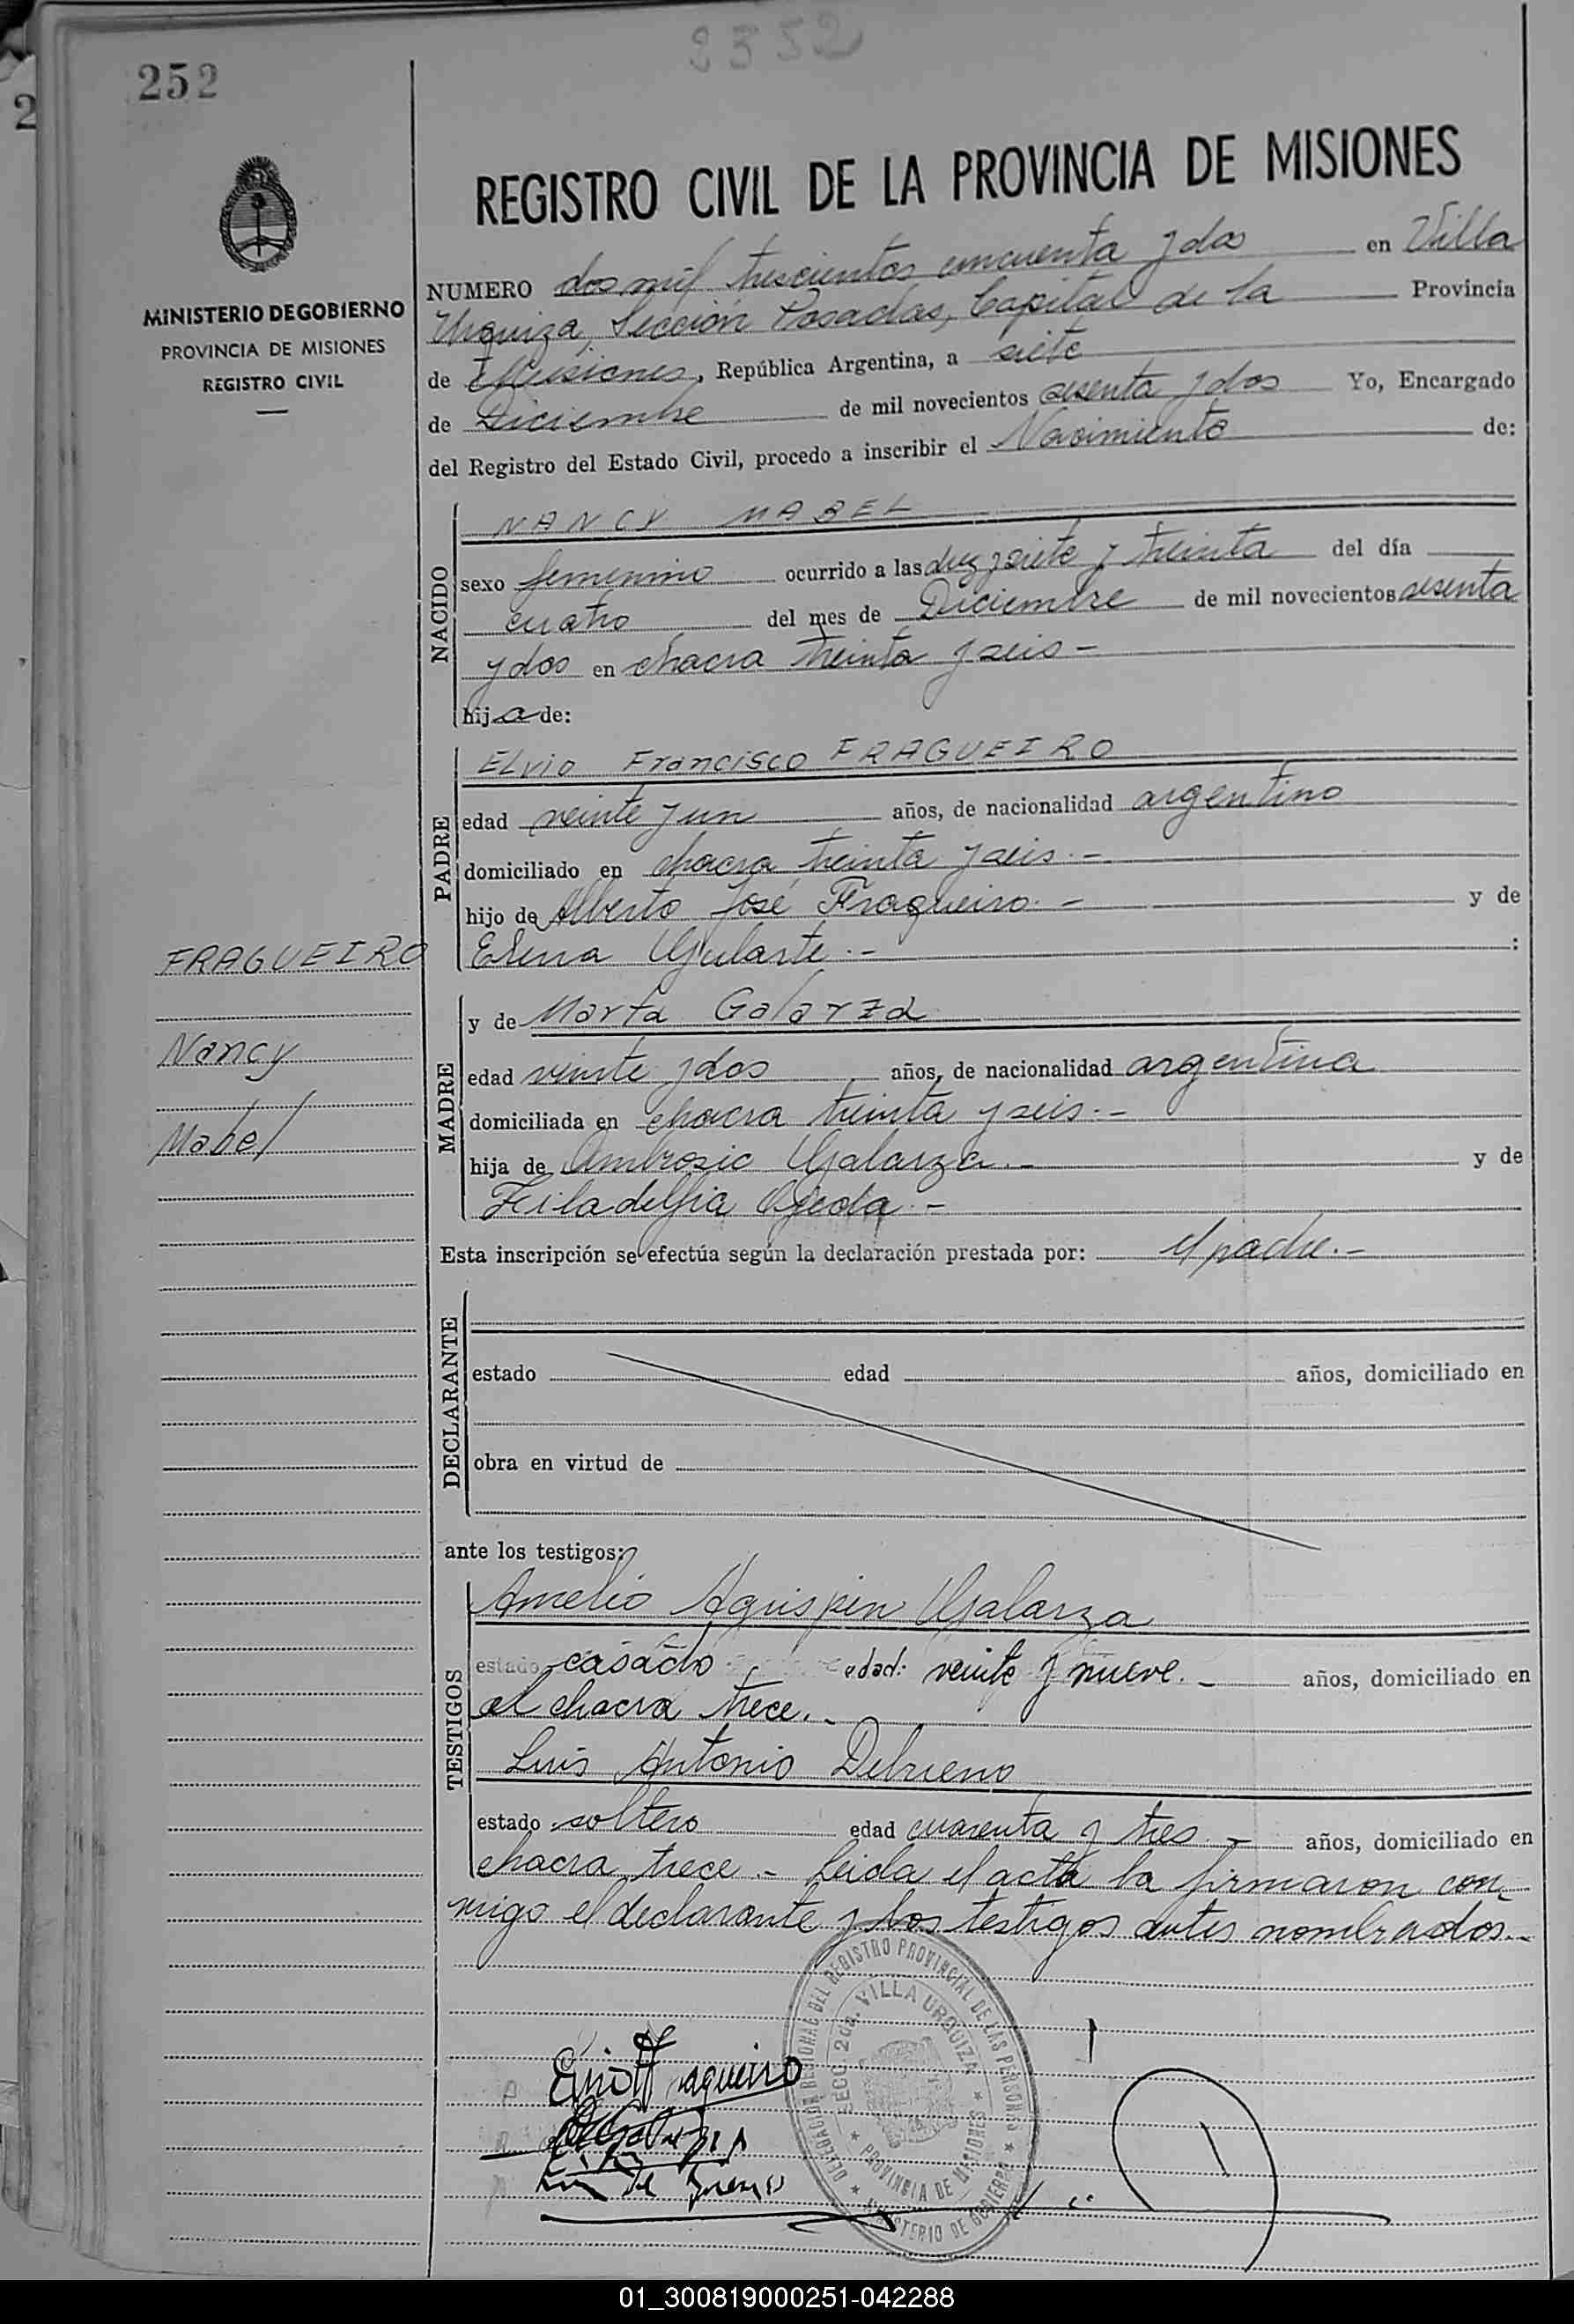 2352
252
MINISTERIO DE GOBIERNO
PROVINCIA DE MISIONES
REGISTRO CIVIL
REGISTRO CIVIL DE LA PROVINCIA DE MISIONES
NUMERO dos mil trescientos cincuenta y dos en Villa
Urquiza, Sección Posadas, Capital de la Provincia
de Misiones, República Argentina, a siete
de Diciembre de mil novecientos sesenta y dos Yo, Encargado
del Registro del Estado Civil, procedo a inscribir el Nacimiento de:
NACIDO
NANCY MABEL
sexo femenino ocurrido a las diez y siete y treinta del día
cuatro del mes de Diciembre de mil novecientos sesenta
y dos en chacra treinta y seis -
hija de:
PADRE
Elvio Francisco FRAGUEIRO
edad veinte y un años, de nacionalidad argentino
domiciliado en chacra treinta y seis.-
hijo de Alberto José Fragueiro.- y de
Elena Gularte.- :
FRAGUEIRO
Nancy
Mabel
MADRE
y de Marta Galarza
edad veinte y dos años, de nacionalidad argentina
domiciliada en chacra treinta y seis.-
hija de Ambrosio Galarza.- y de
Filadelfia Ojeda.-
Esta inscripción se efectúa según la declaración prestada por: el padre.-
DECLARANTE
estado edad años, domiciliado en
obra en virtud de
ante los testigos:
TESTIGOS
Amelio Agrispin Galarza
estado casado edad: veinte y nueve.- años, domiciliado en
el chacra trece.-
Luis Antonio Debrueno
estado soltero edad cuarenta y tres - años, domiciliado en
chacra trece.- Leida el acta la firmaron con-
migo el declarante y los testigos antes nombrados.-
DELEGACION REGIONAL DEL REGISTRO PROVINCIAL DE LAS PERSONAS
MINISTERIO DE GOBIERNO
SECC. 2da. VILLA URQUIZA
PROVINCIA DE MISIONES
01_300819000251-042288